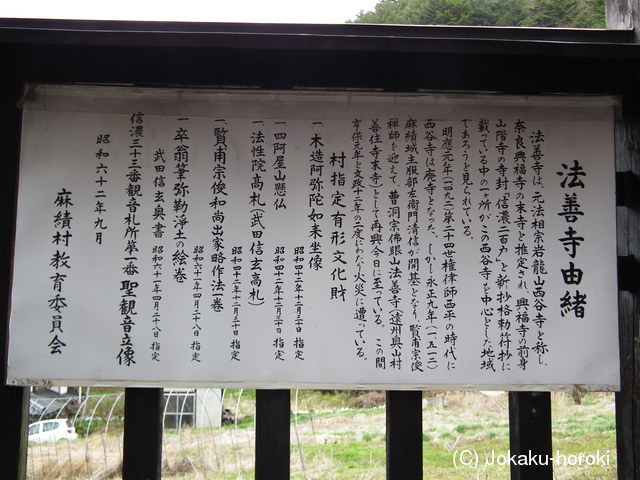 法善寺由緒
法善寺は、元法相宗岩龍山西谷寺と称し、
奈良興福寺の末寺と推定され、興福寺の前身
山階寺の寺封「信濃二百戸」と新抄格勅符抄に
載っている中の一ヶ所がこの西谷寺を中心とした地域
であろうと見られている。
明應元年(一四九二)第二十四世権律師西平の時代に
西谷寺は廃寺となった。しかし永正九年(一五一二)
麻績城主服部左衛門清信が開基となり、賢甫宗俊
禅師を迎えて、曹洞宗佛眼山法善寺(遠州奥山村
善住寺末寺)として再興今日に至っている。この間
享保元年と文政十二年の二度にわたり火災に遭っている。
村指定有形文化財
一木造阿弥陀如来坐像
昭和四十二年十二月三十日 指定
一四阿屋山懸仏
昭和四十二年十二月三十日 指定
一法性院高札(武田信玄高札)
昭和四十二年十二月三十日 指定
一賢甫宗俊和尚出家略作法一巻
昭和六十二年四月二十八日 指定
一卒翁筆弥勒浄土の絵巻
武田信玄奥書 昭和六十二年四月二十八日 指定
信濃三十三番観音札所第一番 聖観音立像
昭和六十二年九月
麻績村教育委員会
(C) Jokaku-horoki